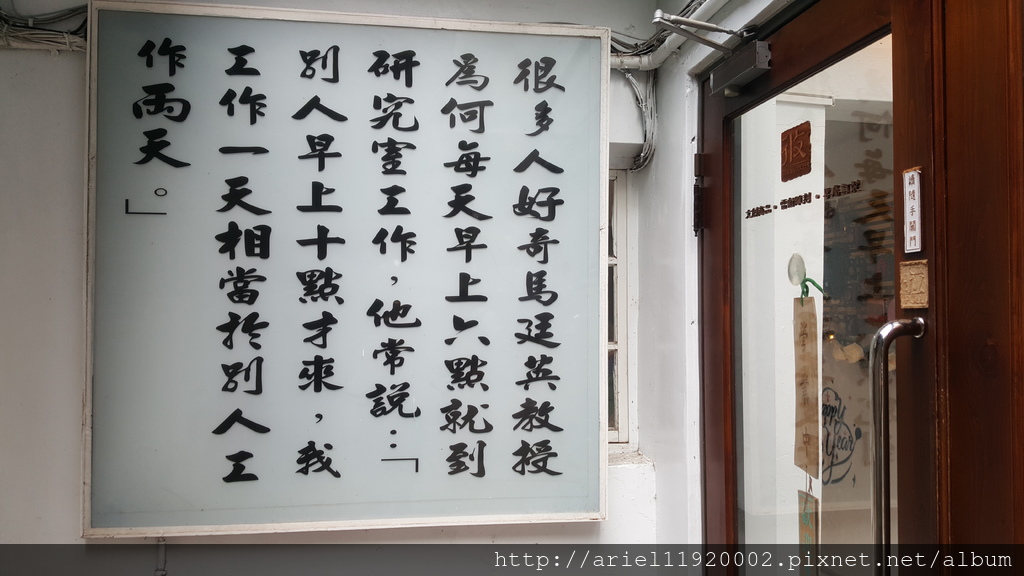 很多人好奇馬廷英教授
為何每天早上六點就到
研究室工作，他常說：「
別人早上十點才來，我
工作一天相當於別人工
作兩天。」
請隨手關門
http://ariel11920002.pixnet.net/album